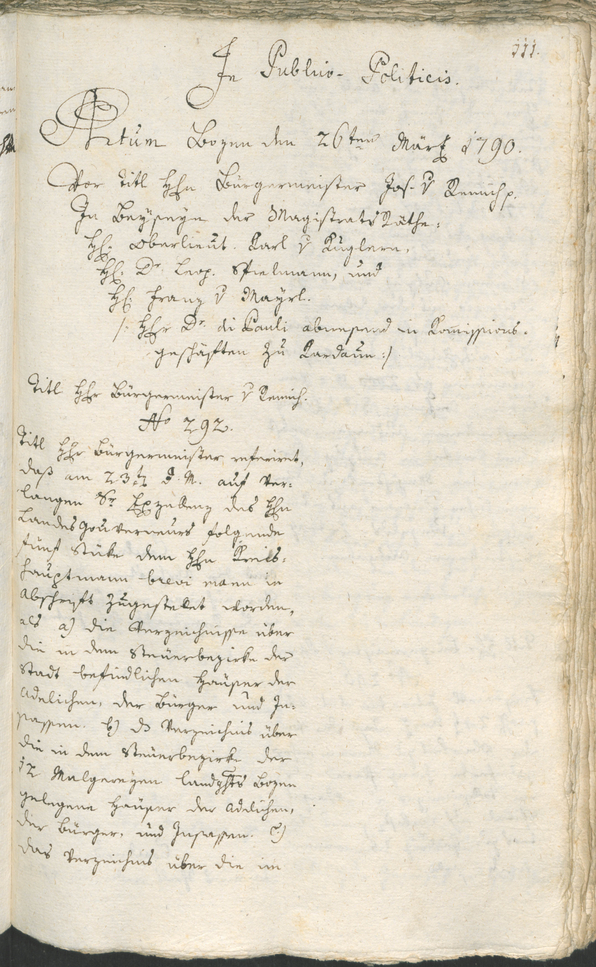 111.
In Publico-Politicis.
Actum Bozen den 26ten März 1790.
Vor Titl Hhn Bürgermeister Jos. v Remich p.
In Beyseyn der Magistrats Räthe,
Hh. Oberlieut. Karl v Kuglern,
Hh. Dr. Leop. Spielmann, und
Hh. Franz v Mayrl.
/: Hhr Dr. di Pauli abwesend in Komissions-
geschäften zu Kardaun :/
Titl Hhr Bürgermeister v Remich.
No 292.
Titl Hhr Bürgermeister referiret,
daß am 23ten d. M. auf Ver-
langen Sr Exzellenz des Hhn
Landesgouverneurs folgende
fünf Stüke dem Hhn Kreis-
hauptmann brevi manu in
Abschrift zugestellt worden,
als a) die Verzeichnisse über
die in dem Steuerbezirke der
Stadt befindlichen Häuser der
Adelichen, der Bürger und In-
sassen. b) ds Verzeichnis über
die in dem Steuerbezirke der
12 Malgereyen Landghts Bozen
gelegene Häuser der Adelichen,
der Bürger, und Insassen. c)
das Verzeichnis über die im